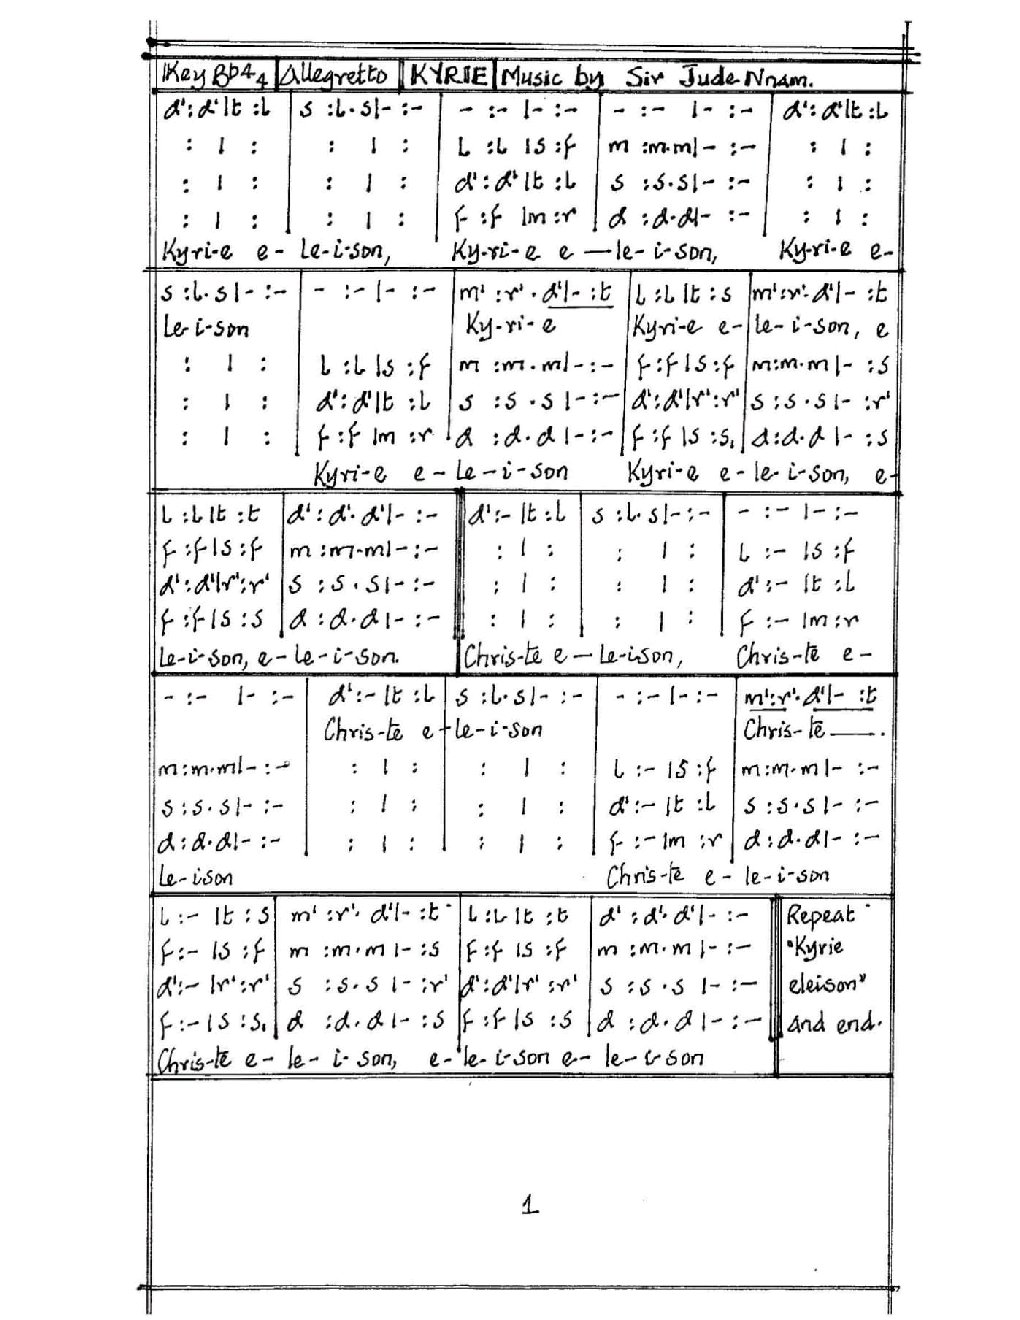 Key Bb 4/4 Allegretto KYRIE Music by Sir Jude Nnam.
d':d'|t :l | s :l.s|- :- | - :- |- :- | - :- |- :- | d':d'|t:l
: | : | : | : | l :l |s :f | m :m.m|- :- | : | :
: | : | : | : | d':d'|t :l | s :s.s|- :- | : | :
: | : | : | : | f :f |m :r | d :d.d|- :- | : | :
Kyri-e e- le-i-son, Ky-ri-e e—le-i-son, Kyri-e e-
s :l.s|- :- | - :- |- :- | m':r'.d'|- :t | l :l |t :s | m':r'.d'|- :t
le-i-son Ky-ri-e Kyri-e e- le-i-son, e
: | : | l :l |s :f | m :m.m|- :- | f:f|s:f | m:m.m|- :s
: | : | d':d'|t :l | s :s.s|- :- | d':d'|r':r' | s :s.s|- :r'
: | : | f :f |m :r | d :d.d|- :- | f :f |s :s, | d:d.d|- :s
Kyri-e e-le-i-son Kyri-e e-le-i-son, e-
l :l|t :t | d':d'.d'|- :- || d':- |t :l | s :l.s|- :- | - :- |- :-
f :f|s :f | m :m.m|- :- || : | : | : | : | l :- |s :f
d':d'|r':r' | s :s.s|- :- || : | : | : | : | d' :- |t :l
f :f|s :s | d :d.d|- :- || : | : | : | : | f :- |m:r
le-i-son, e-le-i-son. Chris-te e—le-ison, Chris-te e-
- :- |- :- | d':- |t :l | s :l.s|- :- | - :- |- :- | m':r'.d'|- :t
Chris-te e-le-i-son Chris-te—.
m:m.m|- :- | : | : | : | : | l :- |s :f | m:m.m|- :-
s :s.s|- :- | : | : | : | : | d':- |t :l | s :s.s|- :-
d :d.d|- :- | : | : | : | : | f :- |m :r | d :d.d|- :-
le-ison Chris-te e-le-i-son
l :- |t :s | m' :r'.d'|- :t | l :l |t :t | d' :d'.d'|- :- || Repeat
f :- |s :f | m :m.m|- :s | f :f |s :f | m :m.m|- :- || "Kyrie
d':- |r':r' | s :s.s|- :r' | d':d'|r' :r' | s :s.s|- :- || eleison"
f :- |s :s, | d :d.d|- :s | f :f |s :s | d :d.d|- :- || And end.
Chris-te e-le-i-son, e-le-i-son e-le-i-son
1